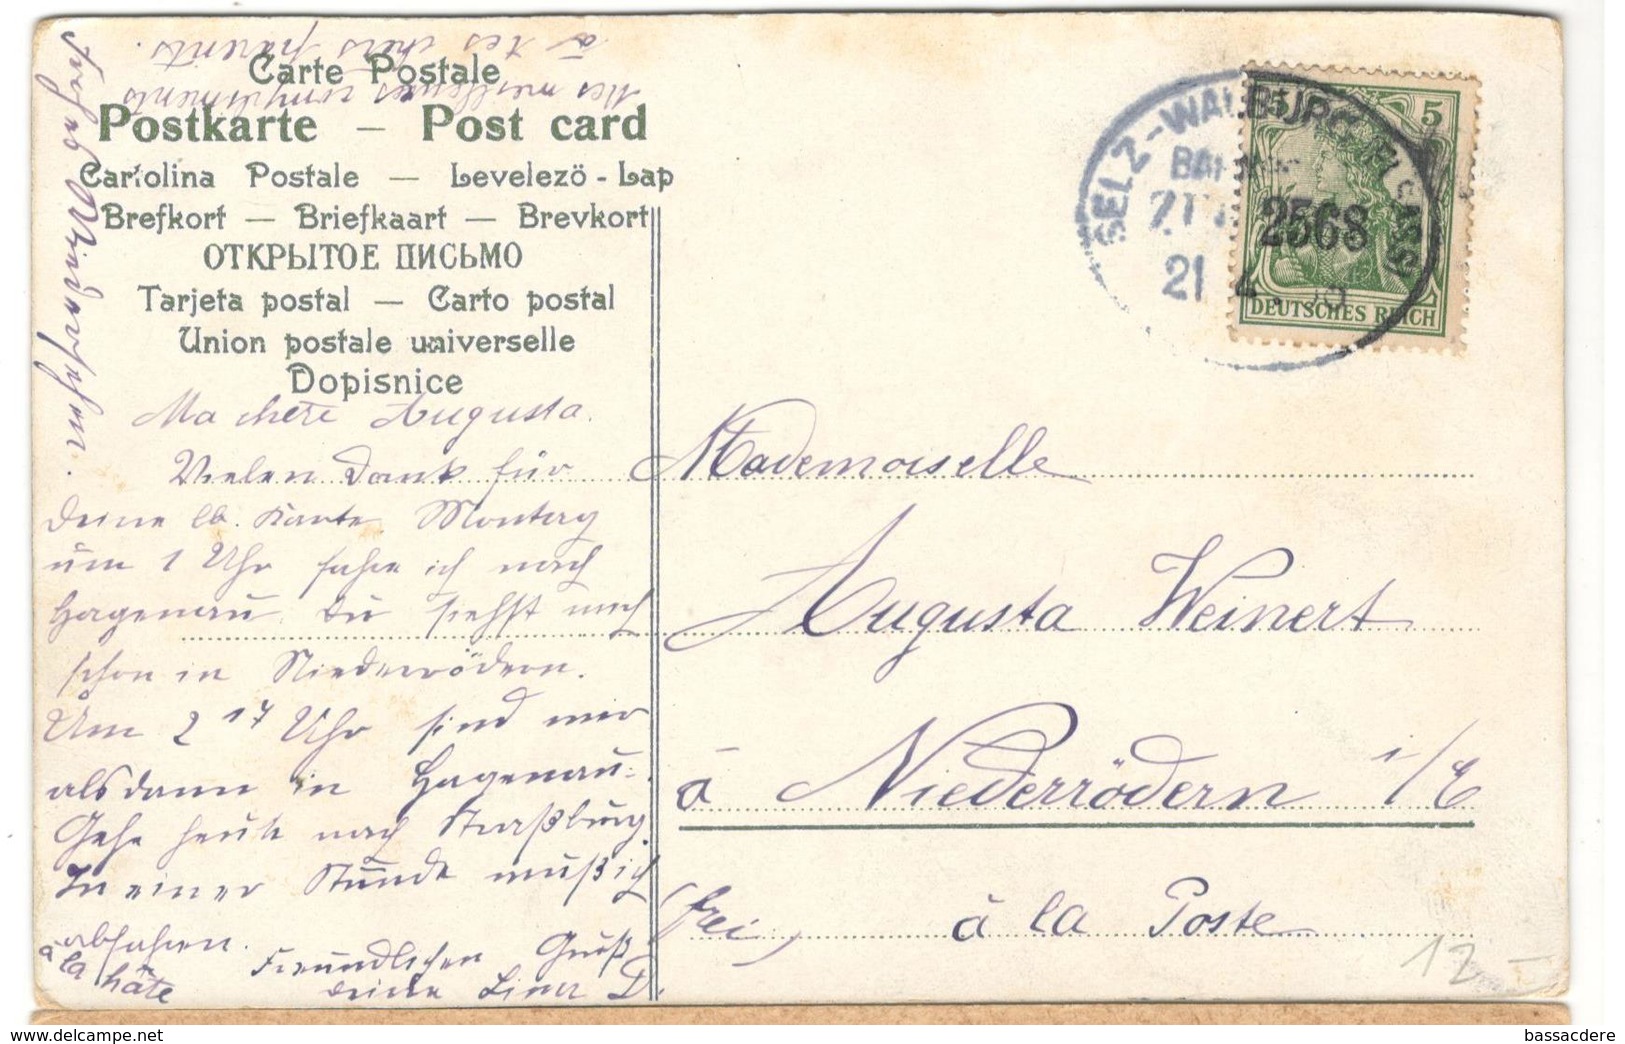 à tes chers parents.
Mes meilleures compliments
Carte Postale
Postkarte — Post card
Cartolina Postale — Levelezö-Lap
Brefkort — Briefkaart — Brevkort
ОТКРЫТОЕ ПИСЬМО
Tarjeta postal — Carto postal
Union postale universelle
Dopisnice
Ma chère Augusta.
Vielen Dank für
Deine lb. Karte. Montag
um 1 Uhr fahre ich nach
Hagenau. Du siehst mich
schon in Niederrödern.
Um 2 17 Uhr sind wir
alsdann in Hagenau.
Gehe heute nach Straßburg.
In einer Stunde muß ich
abfahren.
à la hâte
Freundlichen Gruß
Deine Lina D.
Wiedersehen.
SELZ-WALBURG (ELSASS)
BAHNPOST
ZUG 2568
21 4
5 5
DEUTSCHES REICH
Mademoiselle
Augusta Weinert
à Niederrödern i/E
(frei)
à la Poste
12 –
bassacdere